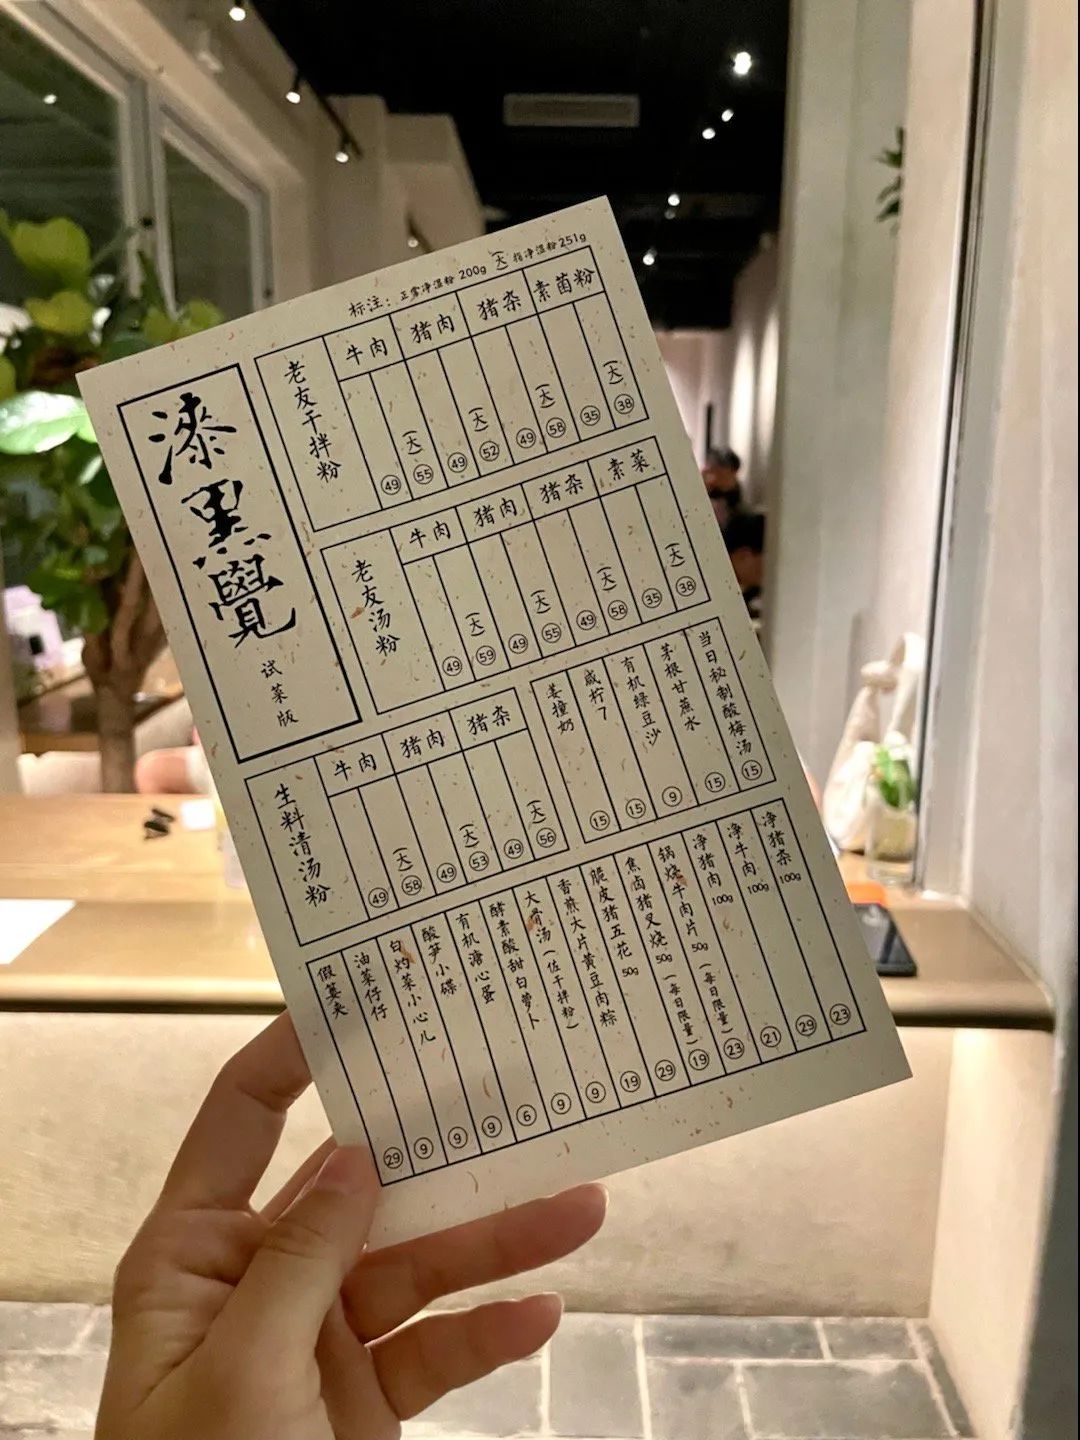 标注：正常净湿粉 200g （大）指净湿粉 251g
漆黑覺
试菜版
老友干拌粉
牛肉 49 （大）55
猪肉 49 （大）52
猪杂 49 （大）58
素菌粉 35 （大）38
老友汤粉
牛肉 49 （大）59
猪肉 49 （大）55
猪杂 49 （大）58
素菜 35 （大）38
生料清汤粉
牛肉 49 （大）58
猪肉 49 （大）53
猪杂 49 （大）56
姜撞奶 15
咸柠7 15
有机绿豆沙 9
茅根甘蔗水 15
当日秘制酸梅汤 15
假篓夹 29
油菜仔仔 9
白灼菜小心儿 9
酸笋小碟 9
有机溏心蛋 6
酵素酸甜白萝卜 9
大骨汤（佐干拌粉） 9
香煎大片黄豆肉粽 19
脆皮猪五花 50g 29
焦卤猪叉烧 50g（每日限量） 19
锅烧牛肉片 50g（每日限量） 23
净猪肉 100g 21
净牛肉 100g 29
净猪杂 100g 23